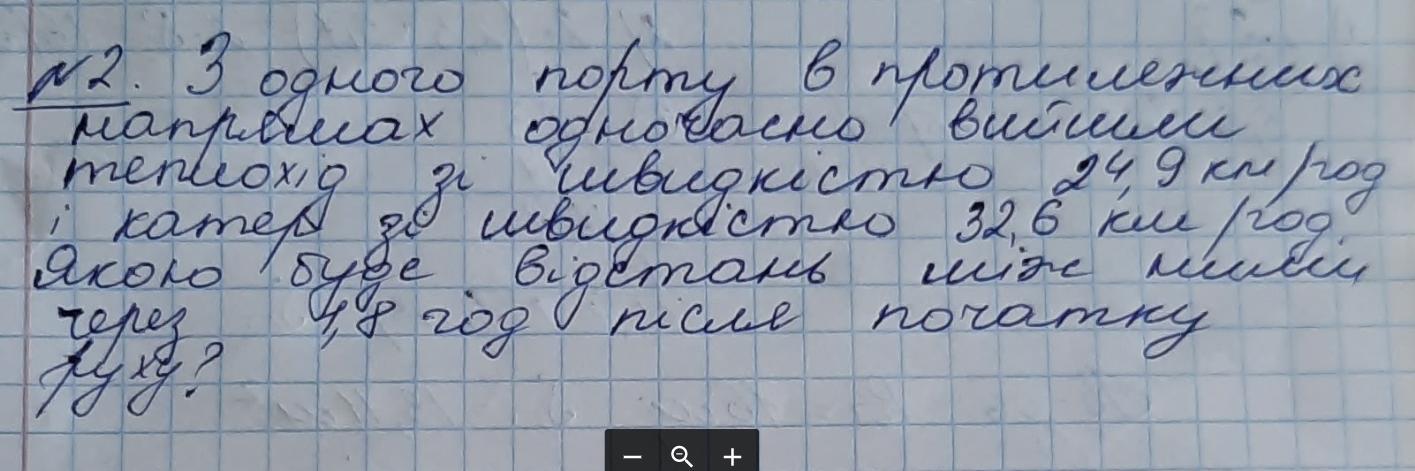 №2. З одного порту в протилежних
напрямах одночасно вийшли
теплохід зі швидкістю 24,9 км/год
і катер зі швидкістю 32,6 км/год.
Якою буде відстань між ними
через 4,8 год після початку
руху?